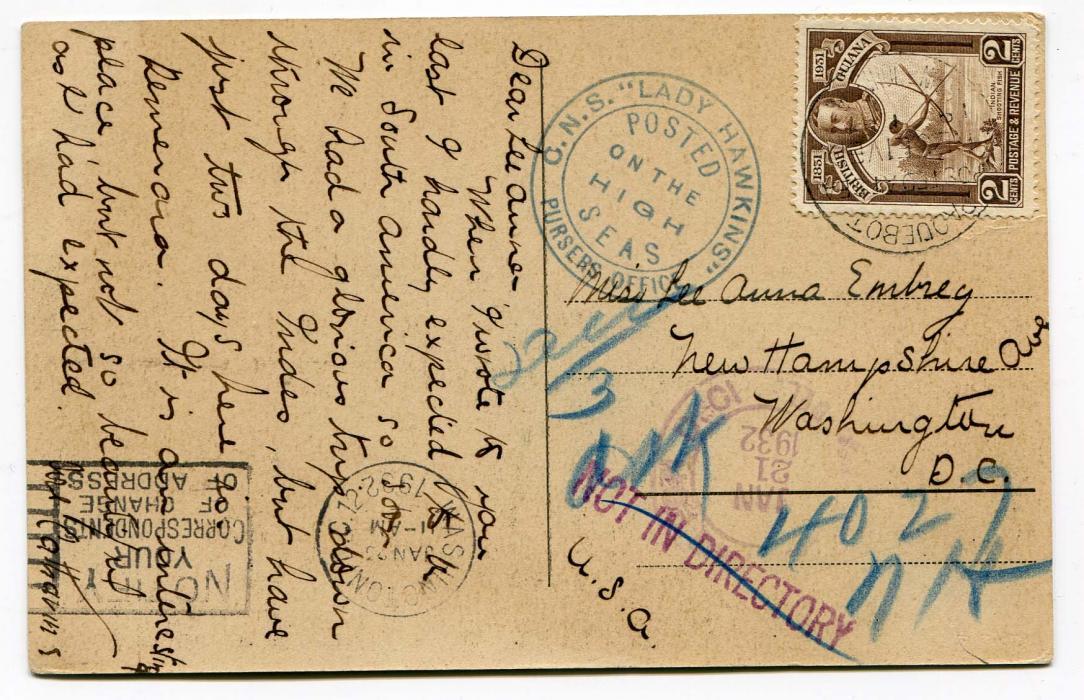 Dear Lee Anna
When I wrote to you
last I hardly expected to be
in South America so soon
We had a glorious trip down
through the Indies, but have
just two days here in
Demerara. It is an interesting
place, but not so beautiful
as I had expected.
C.N.S. "LADY HAWKINS"
POSTED
ON THE
HIGH
SEAS
PURSERS OFFICE
1851 1931
BRITISH GUIANA
INDIAN
SHOOTING FISH
2 CENTS POSTAGE & REVENUE 2 CENTS
PAQUEBOT
Miss Lee Anna Embrey
New Hampshire Ave
Washington
D.C.
U.S.A.
3
4027
NOT IN DIRECTORY
JAN
21
1932
WASHINGTON
JAN 23
1-AM
1932
NOTIFY
YOUR
CORRESPONDENTS
OF CHANGE
OF ADDRESS